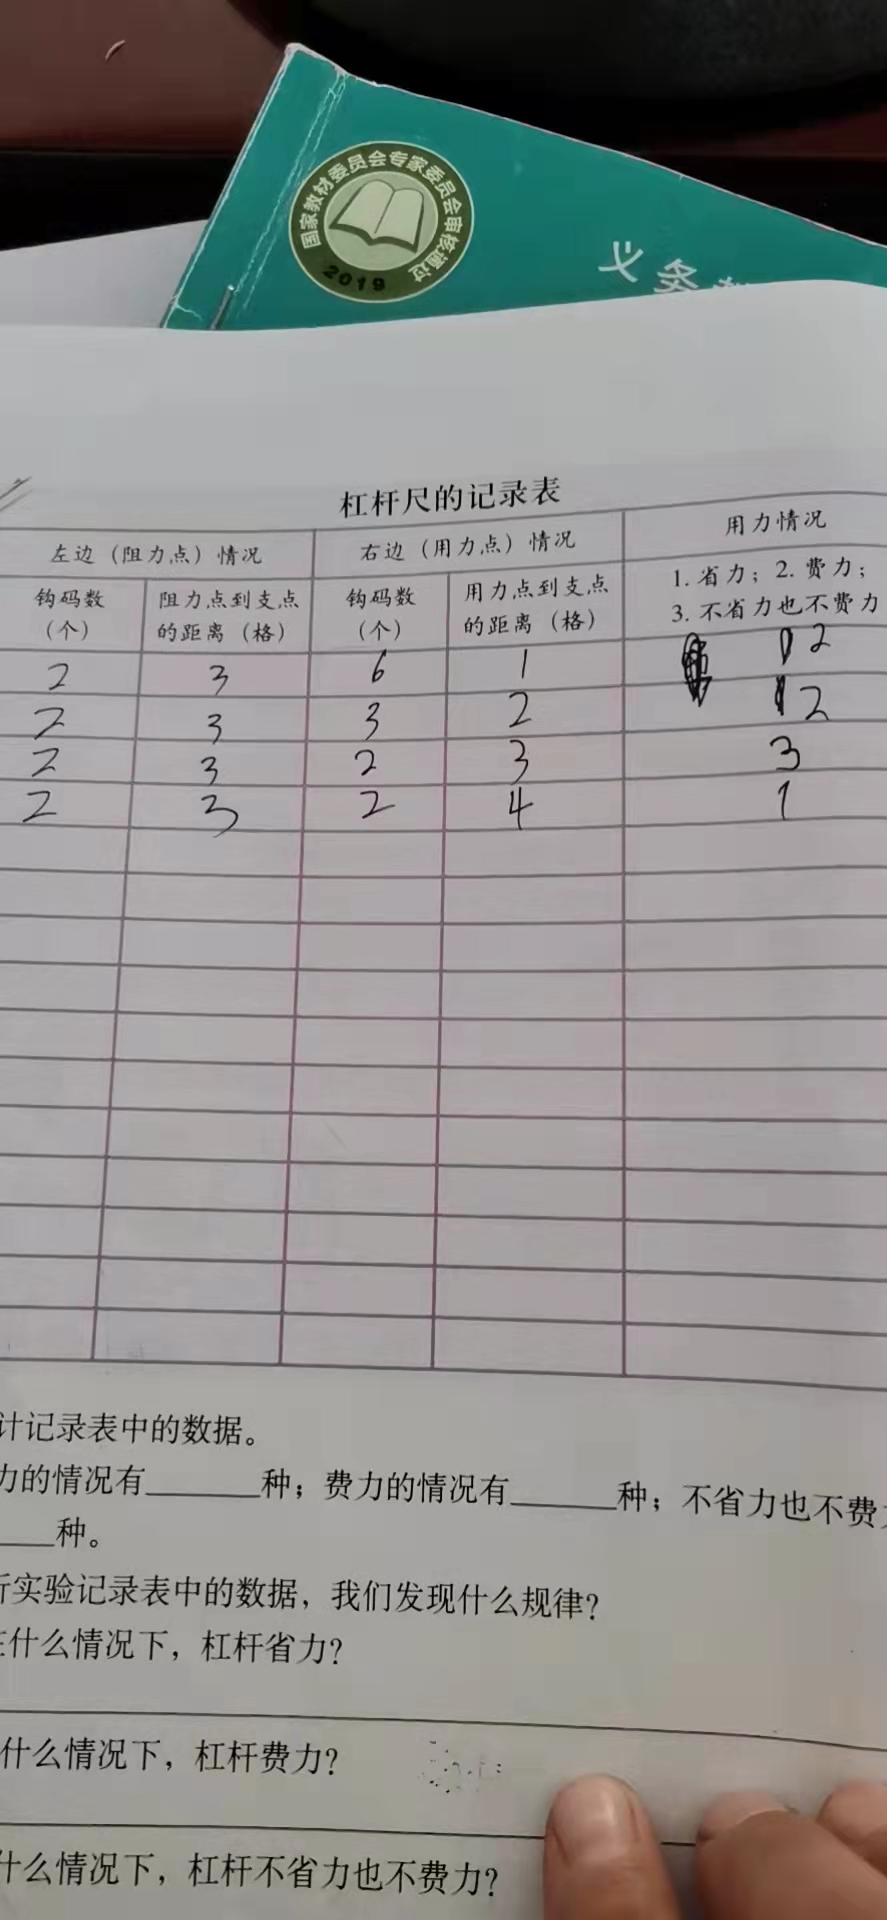 国家教材委员会专家委员会审核通过
2019
义务
杠杆尺的记录表
左边（阻力点）情况 右边（用力点）情况 用力情况
1. 省力；2. 费力；
3. 不省力也不费力
钩码数（个） 阻力点到支点的距离（格） 钩码数（个） 用力点到支点的距离（格）
2 3 6 1 2
2 3 3 2 2
2 3 2 3 3
2 3 2 4 1
计记录表中的数据。
力的情况有______种；费力的情况有______种；不省力也不费力
___种。
析实验记录表中的数据，我们发现什么规律？
在什么情况下，杠杆省力？
什么情况下，杠杆费力？
什么情况下，杠杆不省力也不费力？